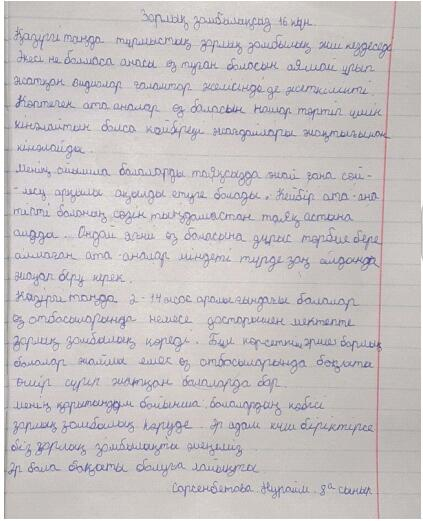 Зорлық зомбылықсыз 16 күн.
Қазіргі таңда тұрмыстық зорлық зомбылық жиі кездеседі
Әкесі не болмаса анасы өз туған баласын аямай ұрып
жатқан видиолар ғаламтор желісінде де жеткілікті.
Көптеген ата аналар өз баласын нашар тәртіп үшін
кінәлайтын болса кейбіреуі жағдайлары жоқтығынан
кінәлайды.
менің ойымша балаларды таяқсызда жай ғана сөй-
лесу арқылы ақылды етуге болады. Кейбір ата-ана
тіпті баланың сөзін тыңдамастан таяқ астына
алады. Ондай яғни өз баласына дұрыс тәрбие бере
алмаған ата-аналар міндетті түрде заң алдында
жауап беру керек.
Қазіргі таңда 2-14 жас аралығындағы балалар
өз отбасыларында немесе достарынен мектепте
зорлық зомбылық көреді. Бұл көрсеткіш әрине барлық
балалар жайлы емес өз отбасыларында бақытты
өмір сүріп жатқан балаларда бар.
менің қорытындым бойынша балалардың көбісі
зорлық зомбылық көруде. Әр адам күш біріктірсе
біз зорлық зомбылықты жеңеміз.
Әр бала бақытты болуға лайықты
Сарсенбетова Нұрайм 8а сынып